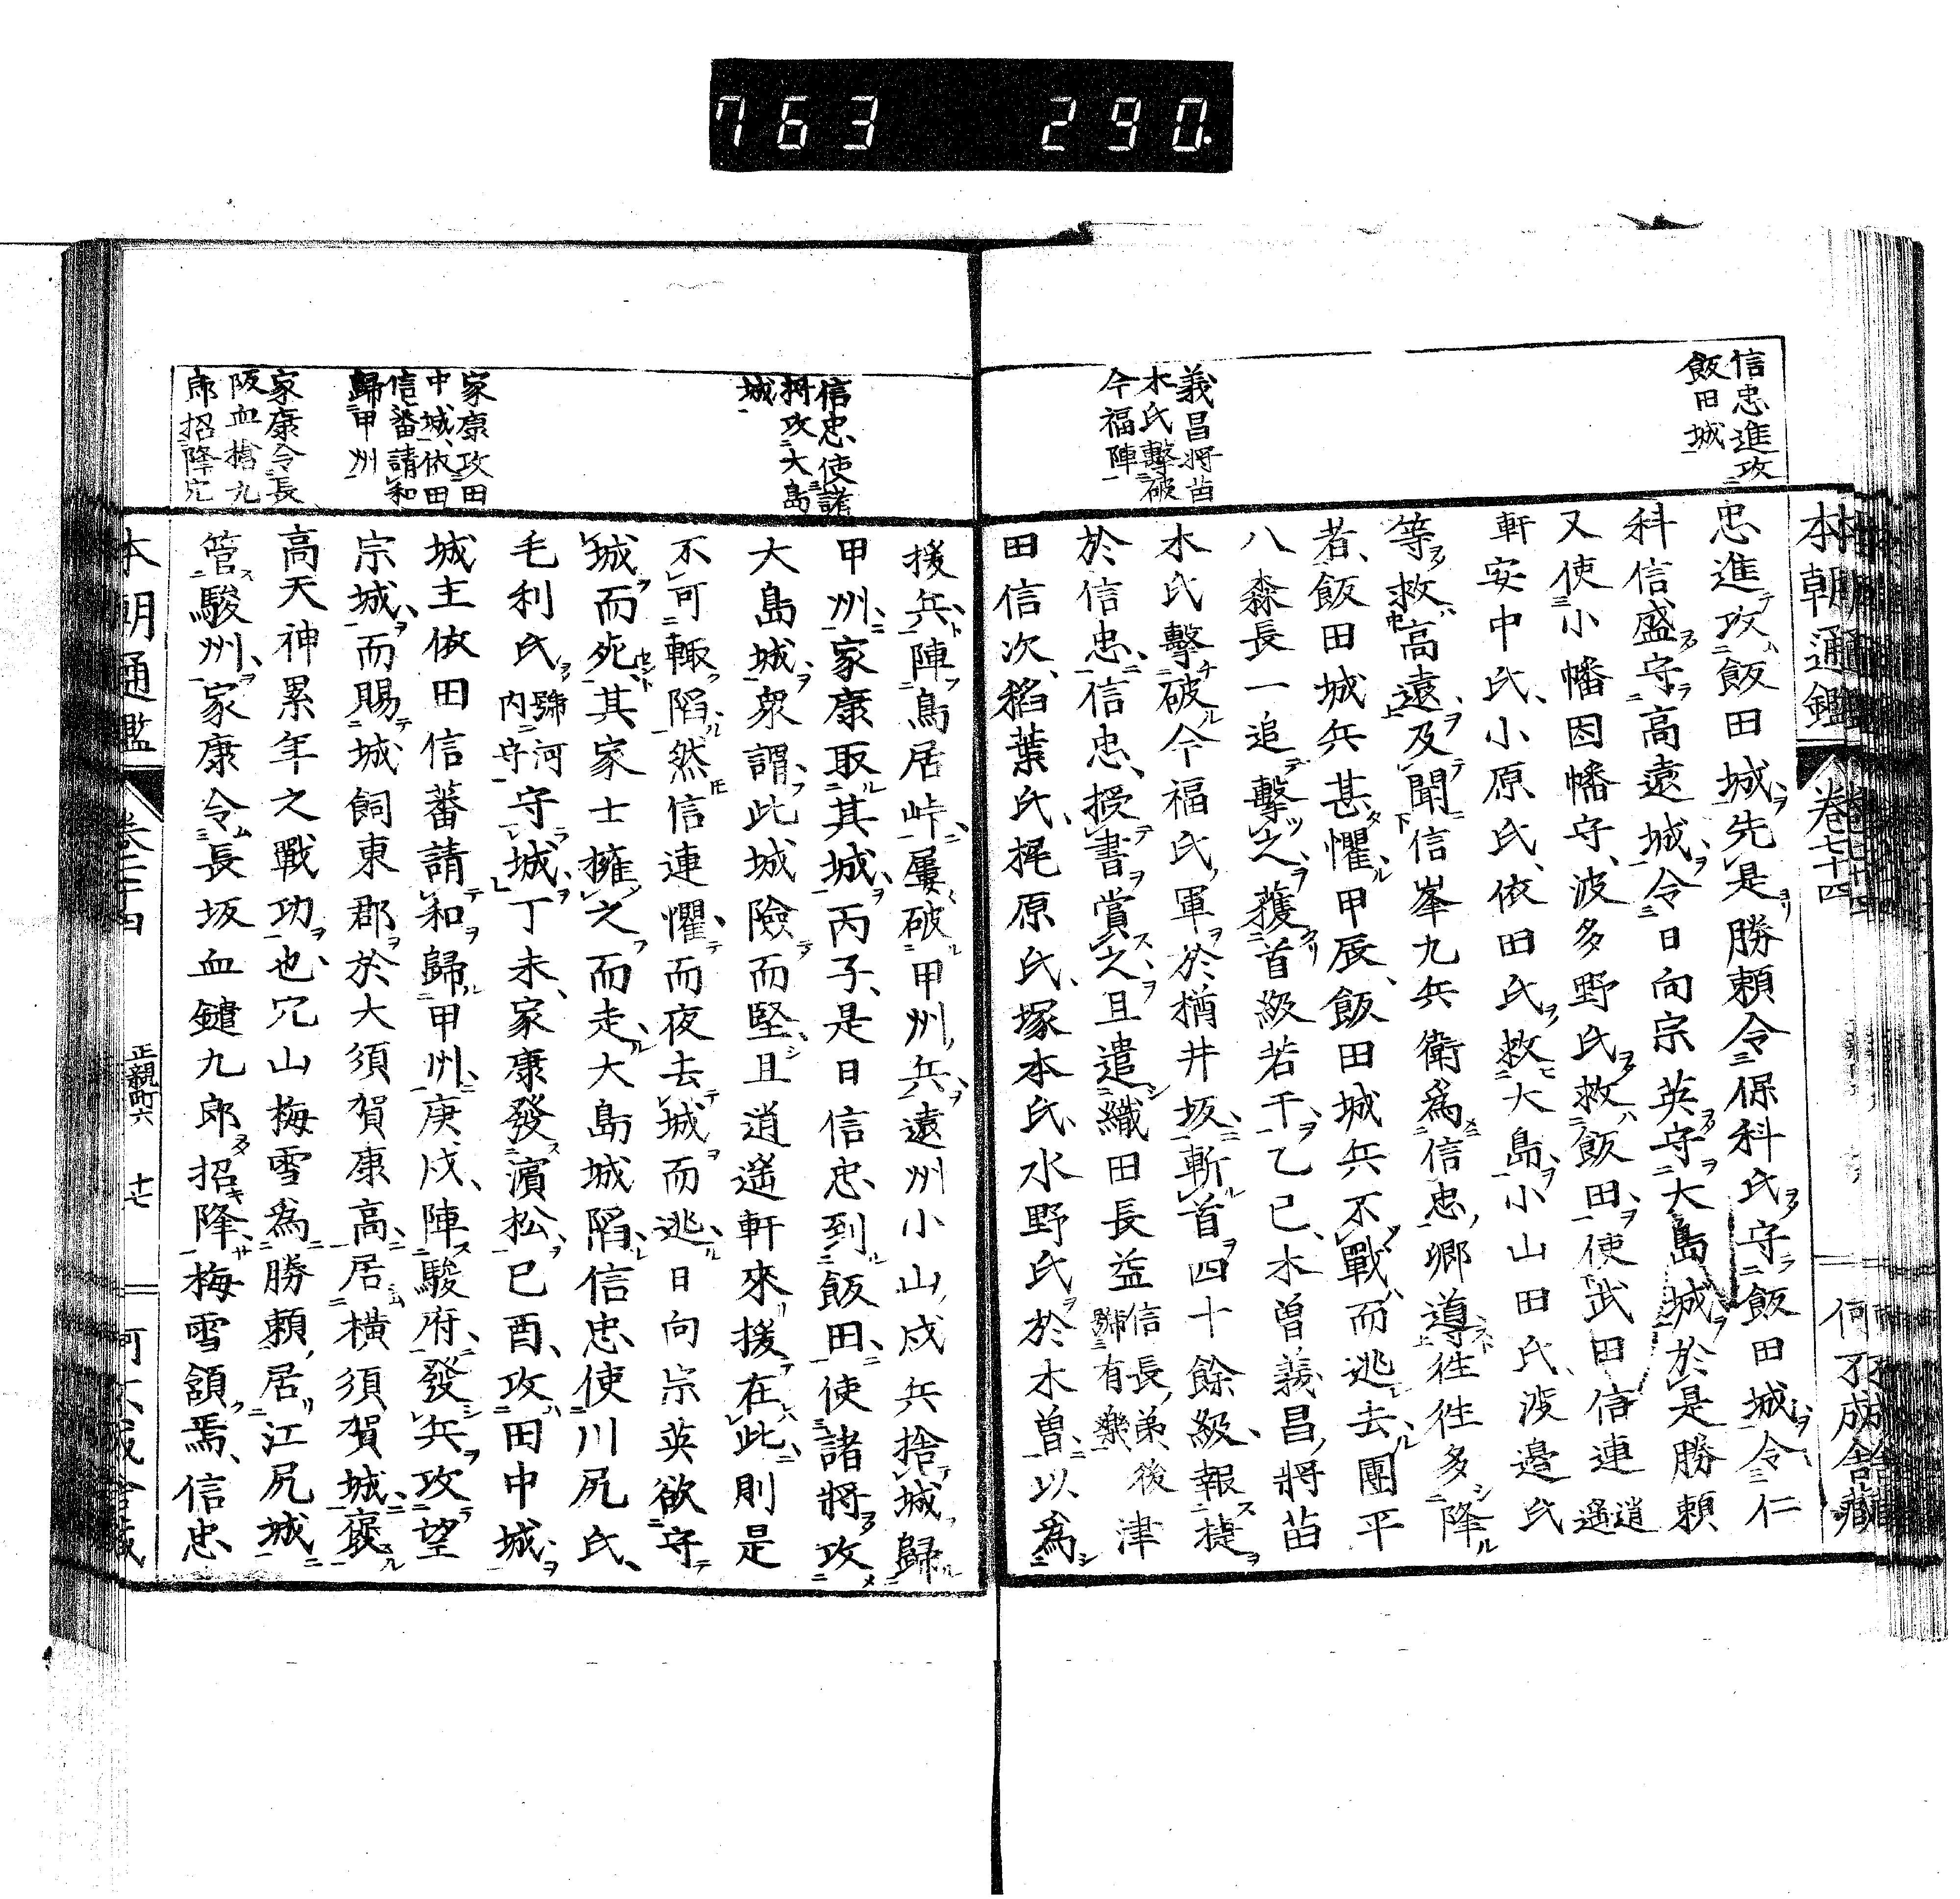 763 290.
信忠進攻
飯田城
本朝通鑑 卷七十四 何不成舍藏
忠進攻飯田城先是勝頼令保科氏守飯田城令仁
科信盛守高遠城令日向宗英守大島城於是勝頼
又使小幡因幡守波多野氏救飯田使武田信連逍遥
軒安中氏小原氏依田氏救大島小山田氏渡邉氏
等救高遠及聞信峯九兵衛為信忠郷導往往多降
者飯田城兵甚懼甲辰飯田城兵不戰而逃去團平
八森長一追擊之獲首級若干乙巳木曽義昌將苗
木氏擊破今福氏軍於楢井坂斬首四十餘級報捷
於信忠信忠授書賞之且遣織田長益信長弟後號有樂津
田信次稻葉氏梶原氏塚本氏水野氏於木曽以為
義昌將苗
木氏擊破
今福陣
援兵陣鳥居峠屢破甲州兵遠州小山戍兵捨城歸
甲州家康取其城丙子是日信忠到飯田使諸將攻
大島城衆謂此城險而堅且逍遥軒來援在此則是
不可輙陷然信連懼而夜去城而逃日向宗英欲守
城而死其家士擁之而走大島城陷信忠使川尻氏
毛利氏號河内守守城丁未家康發濱松已酉攻田中城
城主依田信蕃請和歸甲州庚戍陣駿府發兵攻望
宗城而賜城飼東郡於大須賀康高居横須賀城褒
高天神累年之戰功也宂山梅雪為勝頼居江尻城
管駿州家康令長坂血鑓九郎招降梅雪頷焉信忠
信忠使諸
將攻大島
城
家康攻田
中城依田
信蕃請和
歸甲州
家康令長
阪血槍九
郎招降宂
本朝通鑑 卷七十四 正親町六 十七